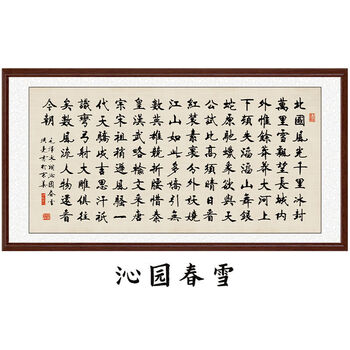 北國風光千里冰封
萬里雪飄望長城内
外惟餘莽莽大河上
下頓失滔滔山舞銀
蛇原馳蠟象欲與天
公試比高須晴日看
紅裝素裹分外妖嬈
江山如此多嬌引無
數英雄競折腰惜秦
皇漢武略輸文采唐
宗宋祖稍遜風騷一
代天驕成吉思汗祇
識彎弓射大雕俱往
矣數風流人物還看
今朝
毛澤東詞沁園春雪
沁园春雪